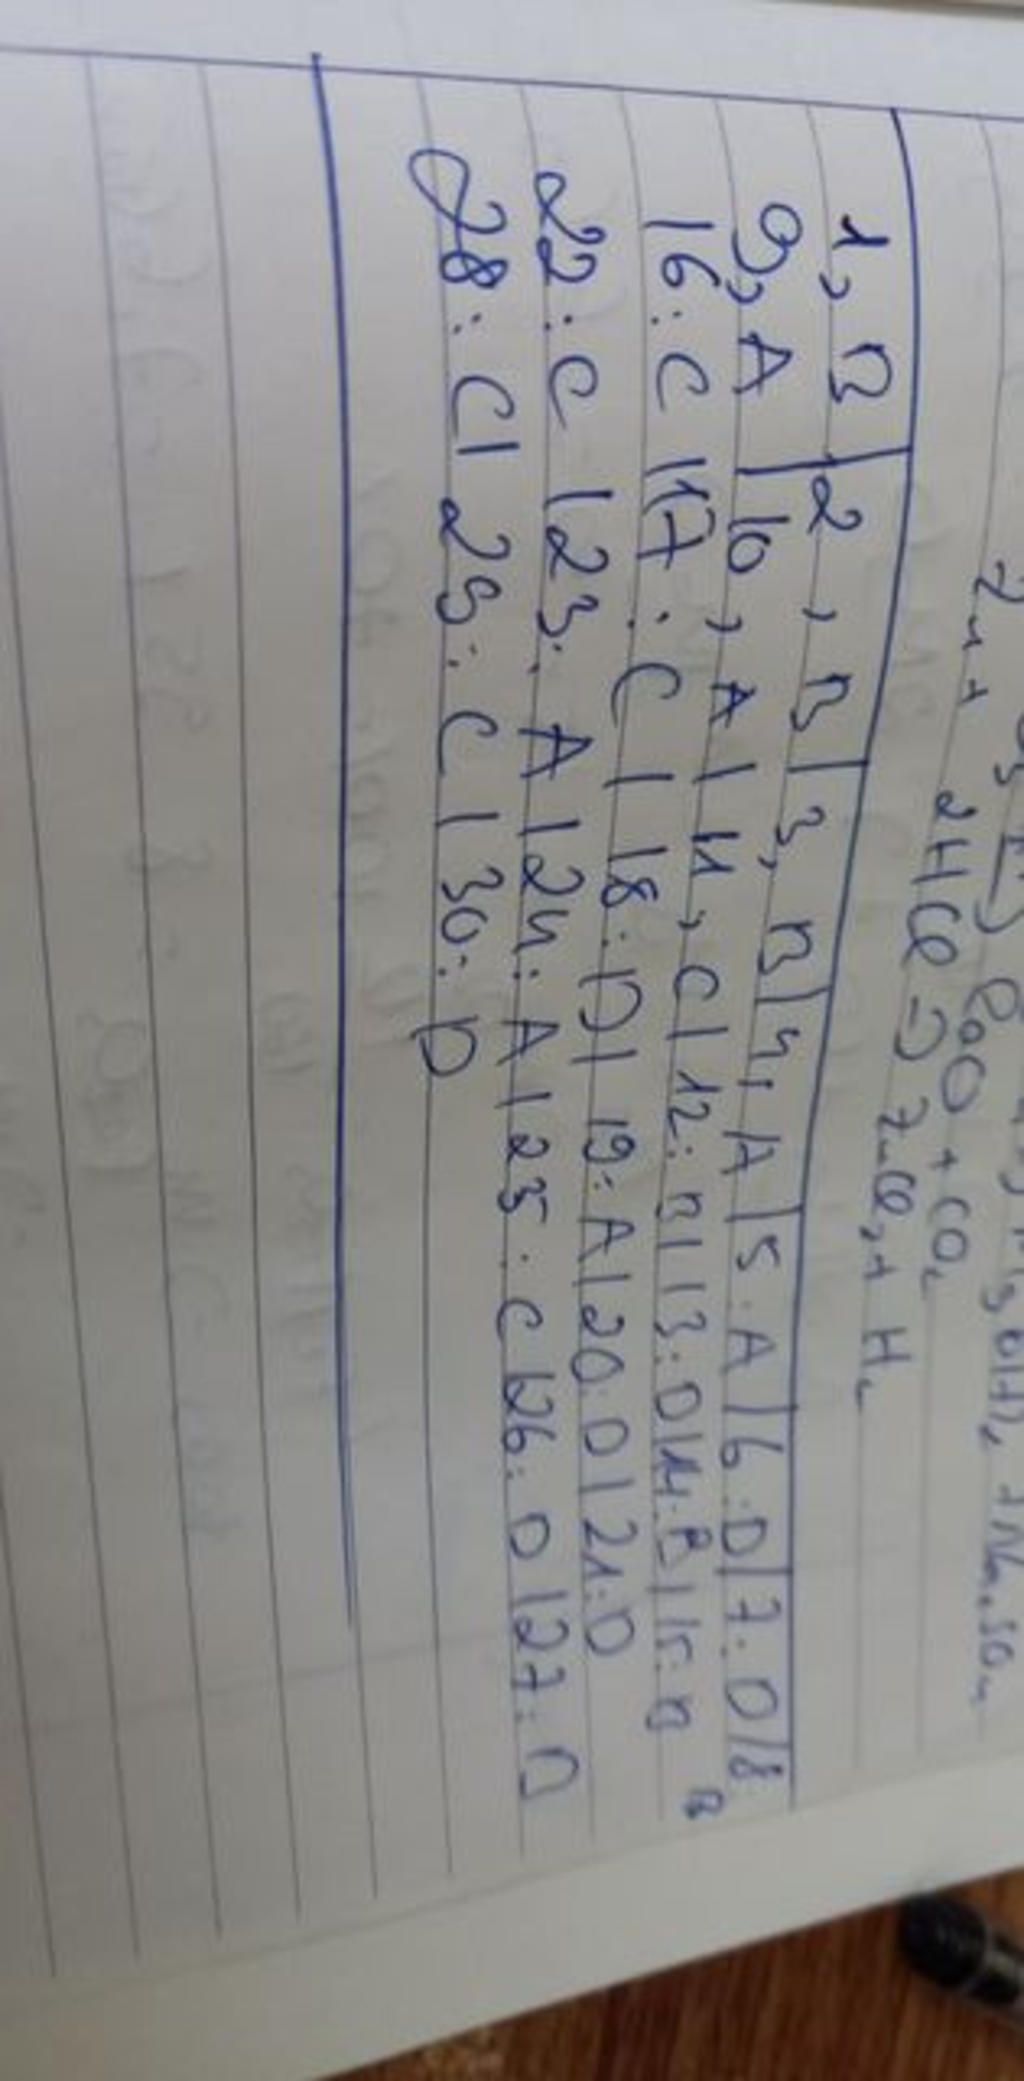 2HCl
CaO + CO₂
1, B | 2, B | 3, B | 4, A | 5. A | 6. D | 7. D | 8.
B
9, A | 10, A | 11, C | 12: B | 13: D | 14: B | 15: B
16: C | 17: C | 18: D | 19: A | 20: D | 21: D
22: C | 23: A | 24: A | 25: C | 26: D | 27: D
28: C | 29: C | 30: D